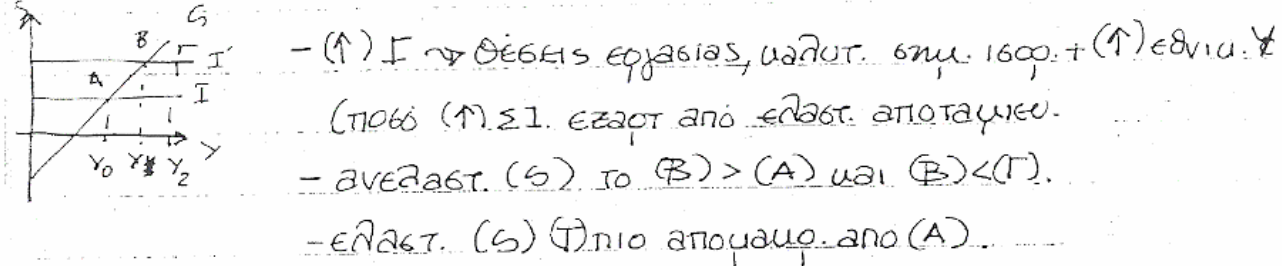 S
S
B
Γ
I'
A
I
Y₀ Y₁ Y₂ Y
- (↑) I ⇝ θέσεις εργασίας, καλυτ. σημ. ισορ. + (↑) εθνικ. Y
(ποσό (↑) ΣΙ. εξαρτ από ελαστ. αποταμιευ.
- ανελαστ. (S) το (Β) > (Α) και (Β) < (Γ).
- ελαστ. (S) (Γ) πιο απομακρ. απο (Α).